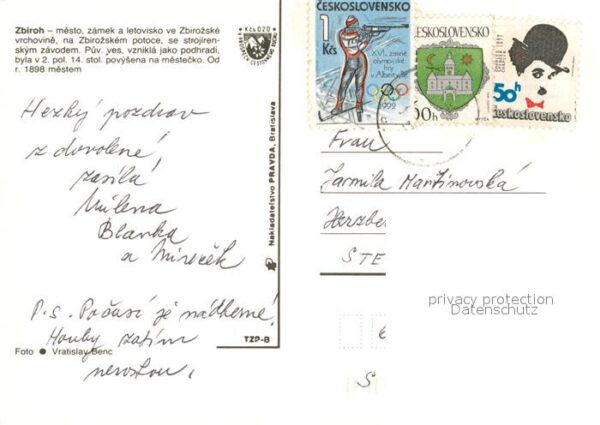 Zbiroh – město, zámek a letovisko ve Zbirožské
vrchovině, na Zbirožském potoce, se strojíren-
ským závodem. Pův. ves, vzniklá jako podhradí,
byla v 2. pol. 14. stol. povýšena na městečko. Od
r. 1898 městem
Kčs 0,20
Hezký pozdrav
z dovolené,
zasílá
Milena
Blanka
a Mireček
P.S. Počasí je nádherné!
Houby zatím
nerostou,
Foto ● Vratislav Benc
Nakladatelství PRAVDA, Bratislava
TZP-B
ČESKOSLOVENSKO
1
Kčs
XVI. zimné
olympijské
hry
v Albertville
1992
ČESKOSLOVENSKO
50h
50h
Československo
Frau
Jarmila Martinovská
Herzbe
STE
privacy protection
Datenschutz
S